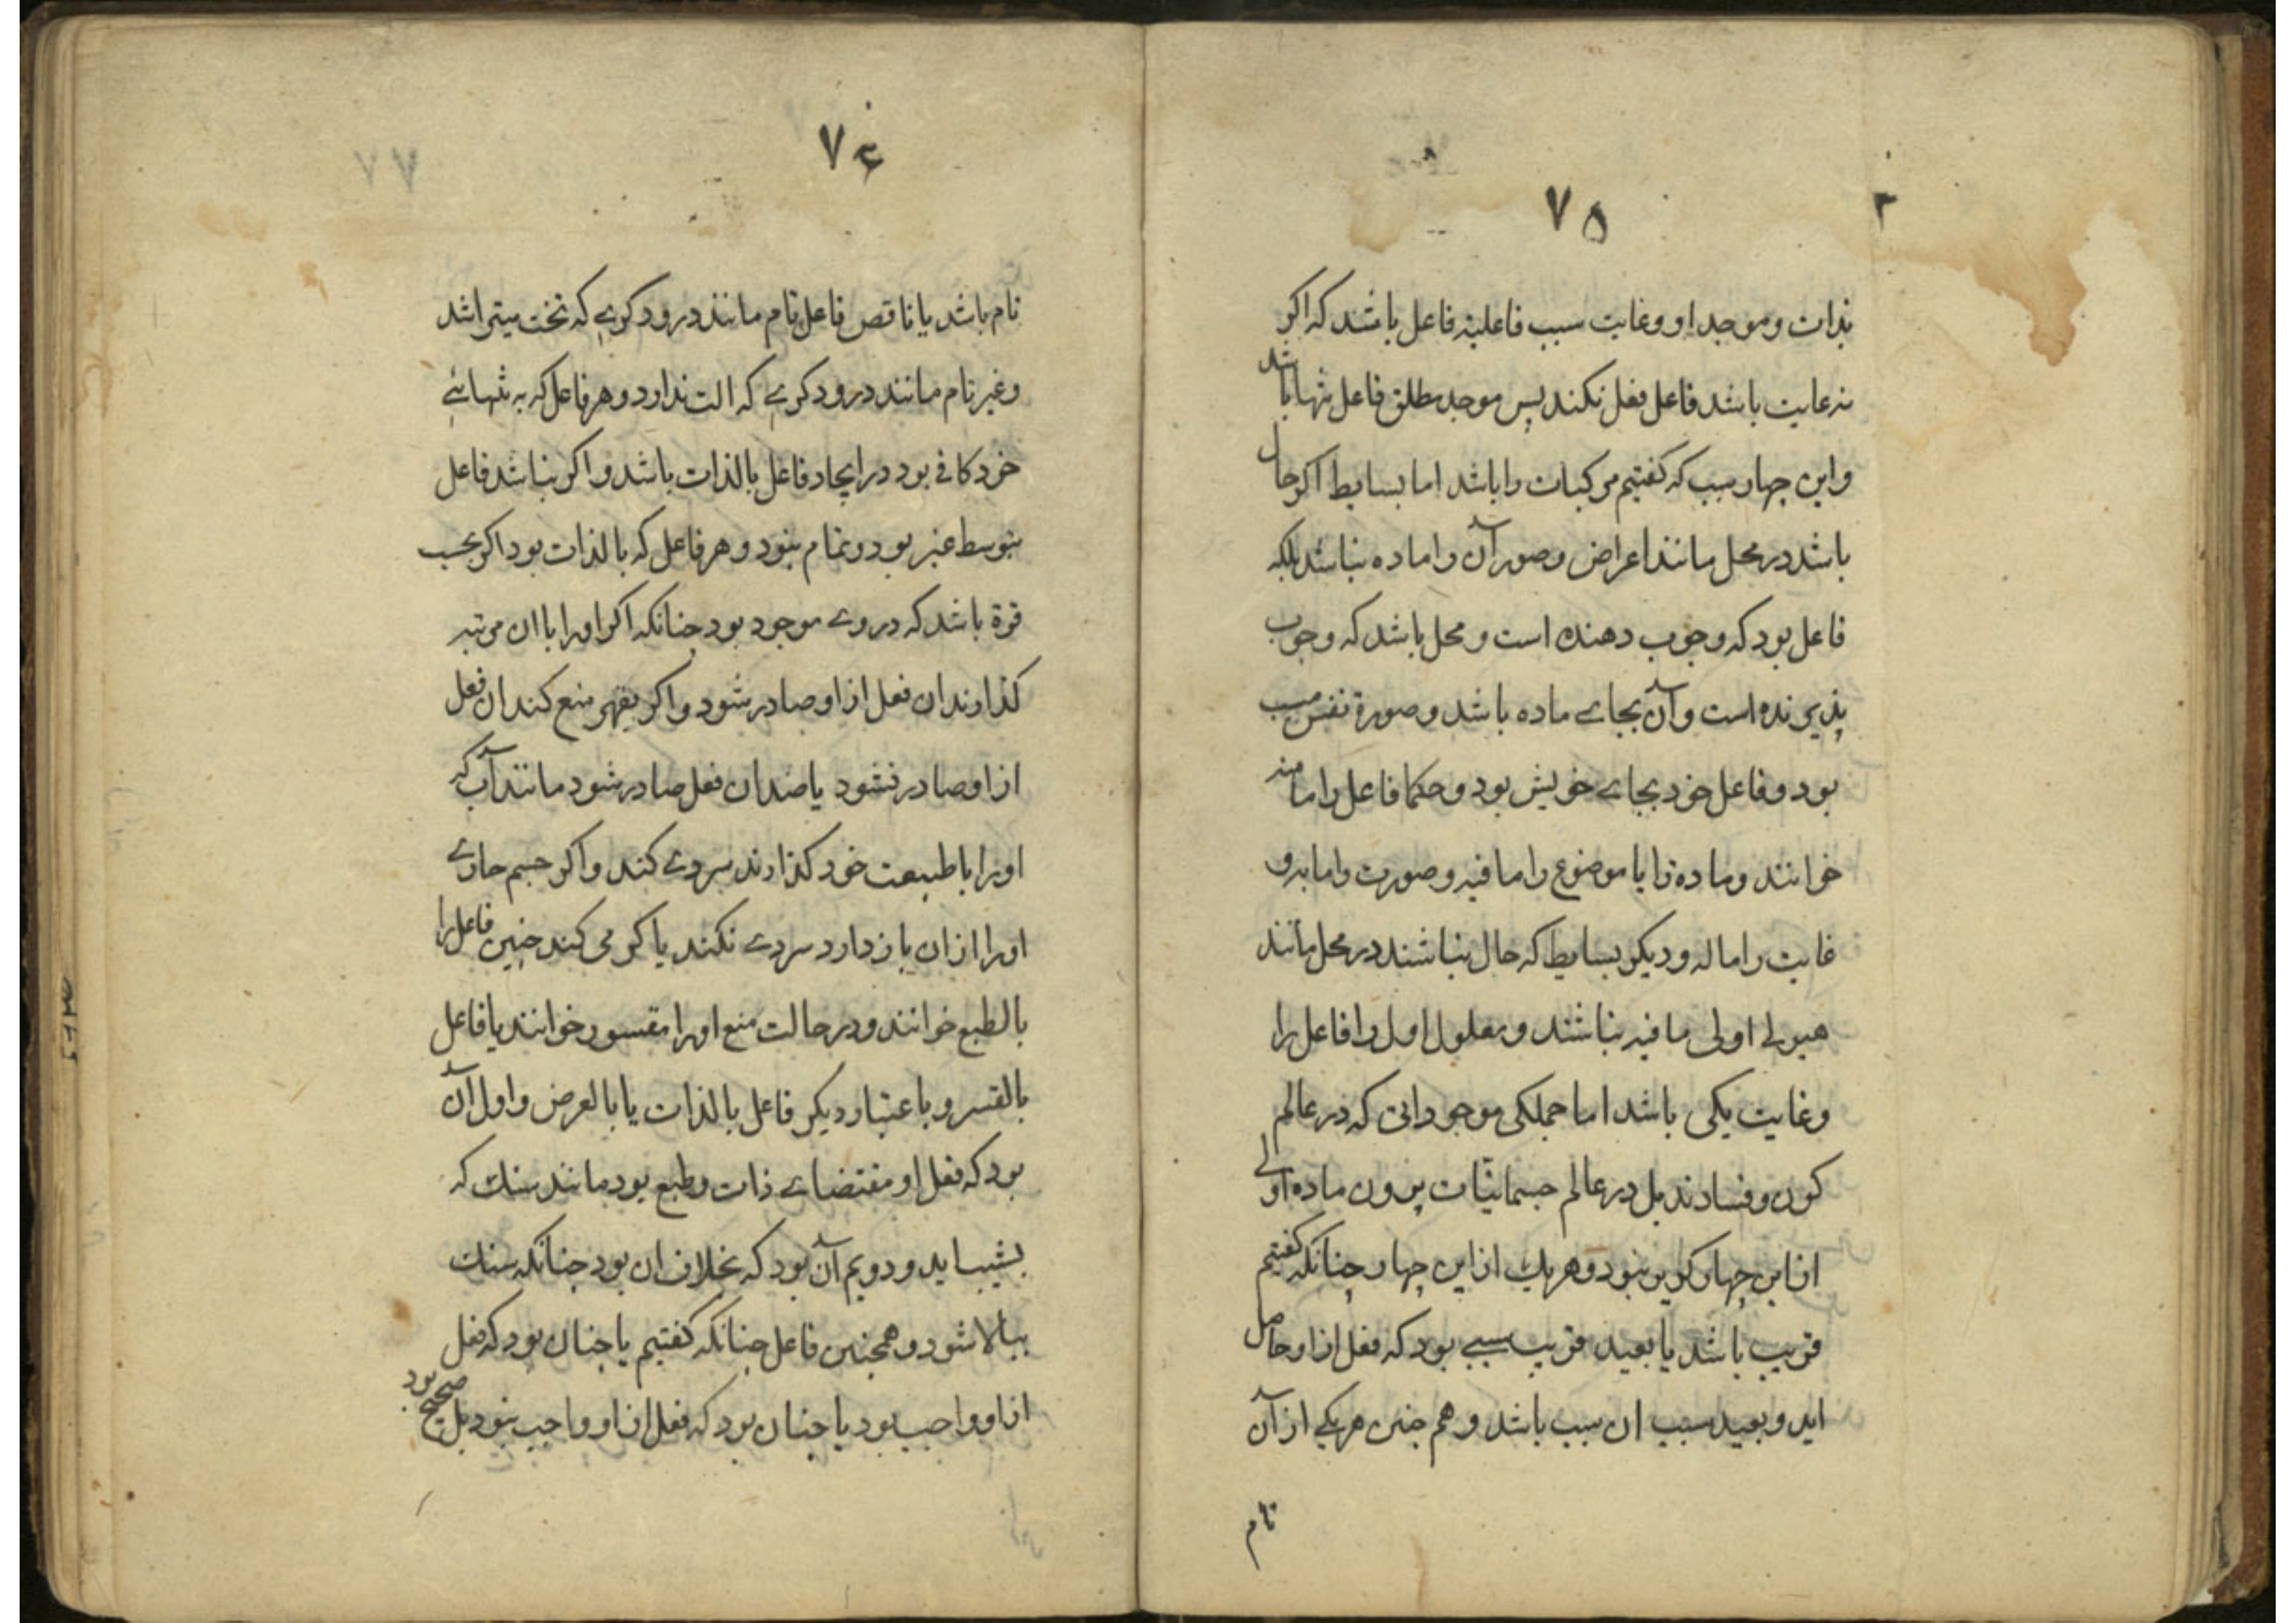 ۷۵
بذات و موجد او و غایت سبب فاعلیة فاعل باشد که اکر
نه غایت باشد فاعل فعل نکند پس موجد مطلق فاعل تنها باشد
و این چهار سبب که کفتیم مرکبات را باشد اما بسایط اکر حال
باشد در محل مانند اعراض و صور آن را ماده نباشد بلکه
فاعل بود که وجوب دهنده است و محل باشد که وجوب
پذیرنده است و آن بجاے ماده باشد و صورة نفس مسبب
بود و فاعل خود بجاے خویش بود و حکما فاعل را ما منه
خوانند و ماده را یا موضوع را ما فیه و صورت را ما به و
غایت را ما له و دیکر بسایط که حال نباشند در محل مانند
هیولے اولی ما فیه نباشند و معلول اول را فاعل را
و غایت یکی باشد اما جملکی موجوداتی که در عالم
کون و فسادند بل در عالم جسمانیّات برون ماده اولے
از این چهار کزیر نبود و هر یک از این چهار چنانکه کفتیم
قریب باشد یا بعید قریب سببے بود که فعل از او حاصل
اید و بعید سبب ان سبب باشد و هم چنین هر یکے از آن
تام
۷۶
تام باشد یا ناقص فاعل تام مانند درودکرے که تخت میتراشد
و غیر تام مانند درودکرے که الت ندارد و هر فاعل که به تنهائے
خود کافے بود در ایجاد فاعل بالذات باشد و اکر نباشد فاعل
بتوسط غیر بود و تمام نبود و هر فاعل که بالذات بود اکر بحسب
قوة باشد که در وے موجود بود چنانکه اکر او را با ان مرتبه
کذارند ان فعل از او صادر شود و اکر بقهر منع کند ان فعل
از او صادر نشود یا ضد ان فعل صادر شود مانند آب که
او را با طبیعت خود کذارند سردے کند و اکر جسم حارے
او را از ان باز دارد سردے نکند یا کرمی کند چنین فاعل را
بالطبع خوانند و در حالت منع او را مقسور خوانند یا فاعل
بالقسر و باعتبار دیکر فاعل بالذات یا بالعرض و اول آن
بود که فعل او مقتضاے ذات و طبع بود مانند سنک که
بشیب اید و دویم آن بود که بخلاف ان بود چنانکه سنک
ببالا شود و همچنین فاعل چنانکه کفتیم یا چنان بود که فعل
از او واجب بود یا چنان بود که فعل از او واجب نبود بل صحیح بود